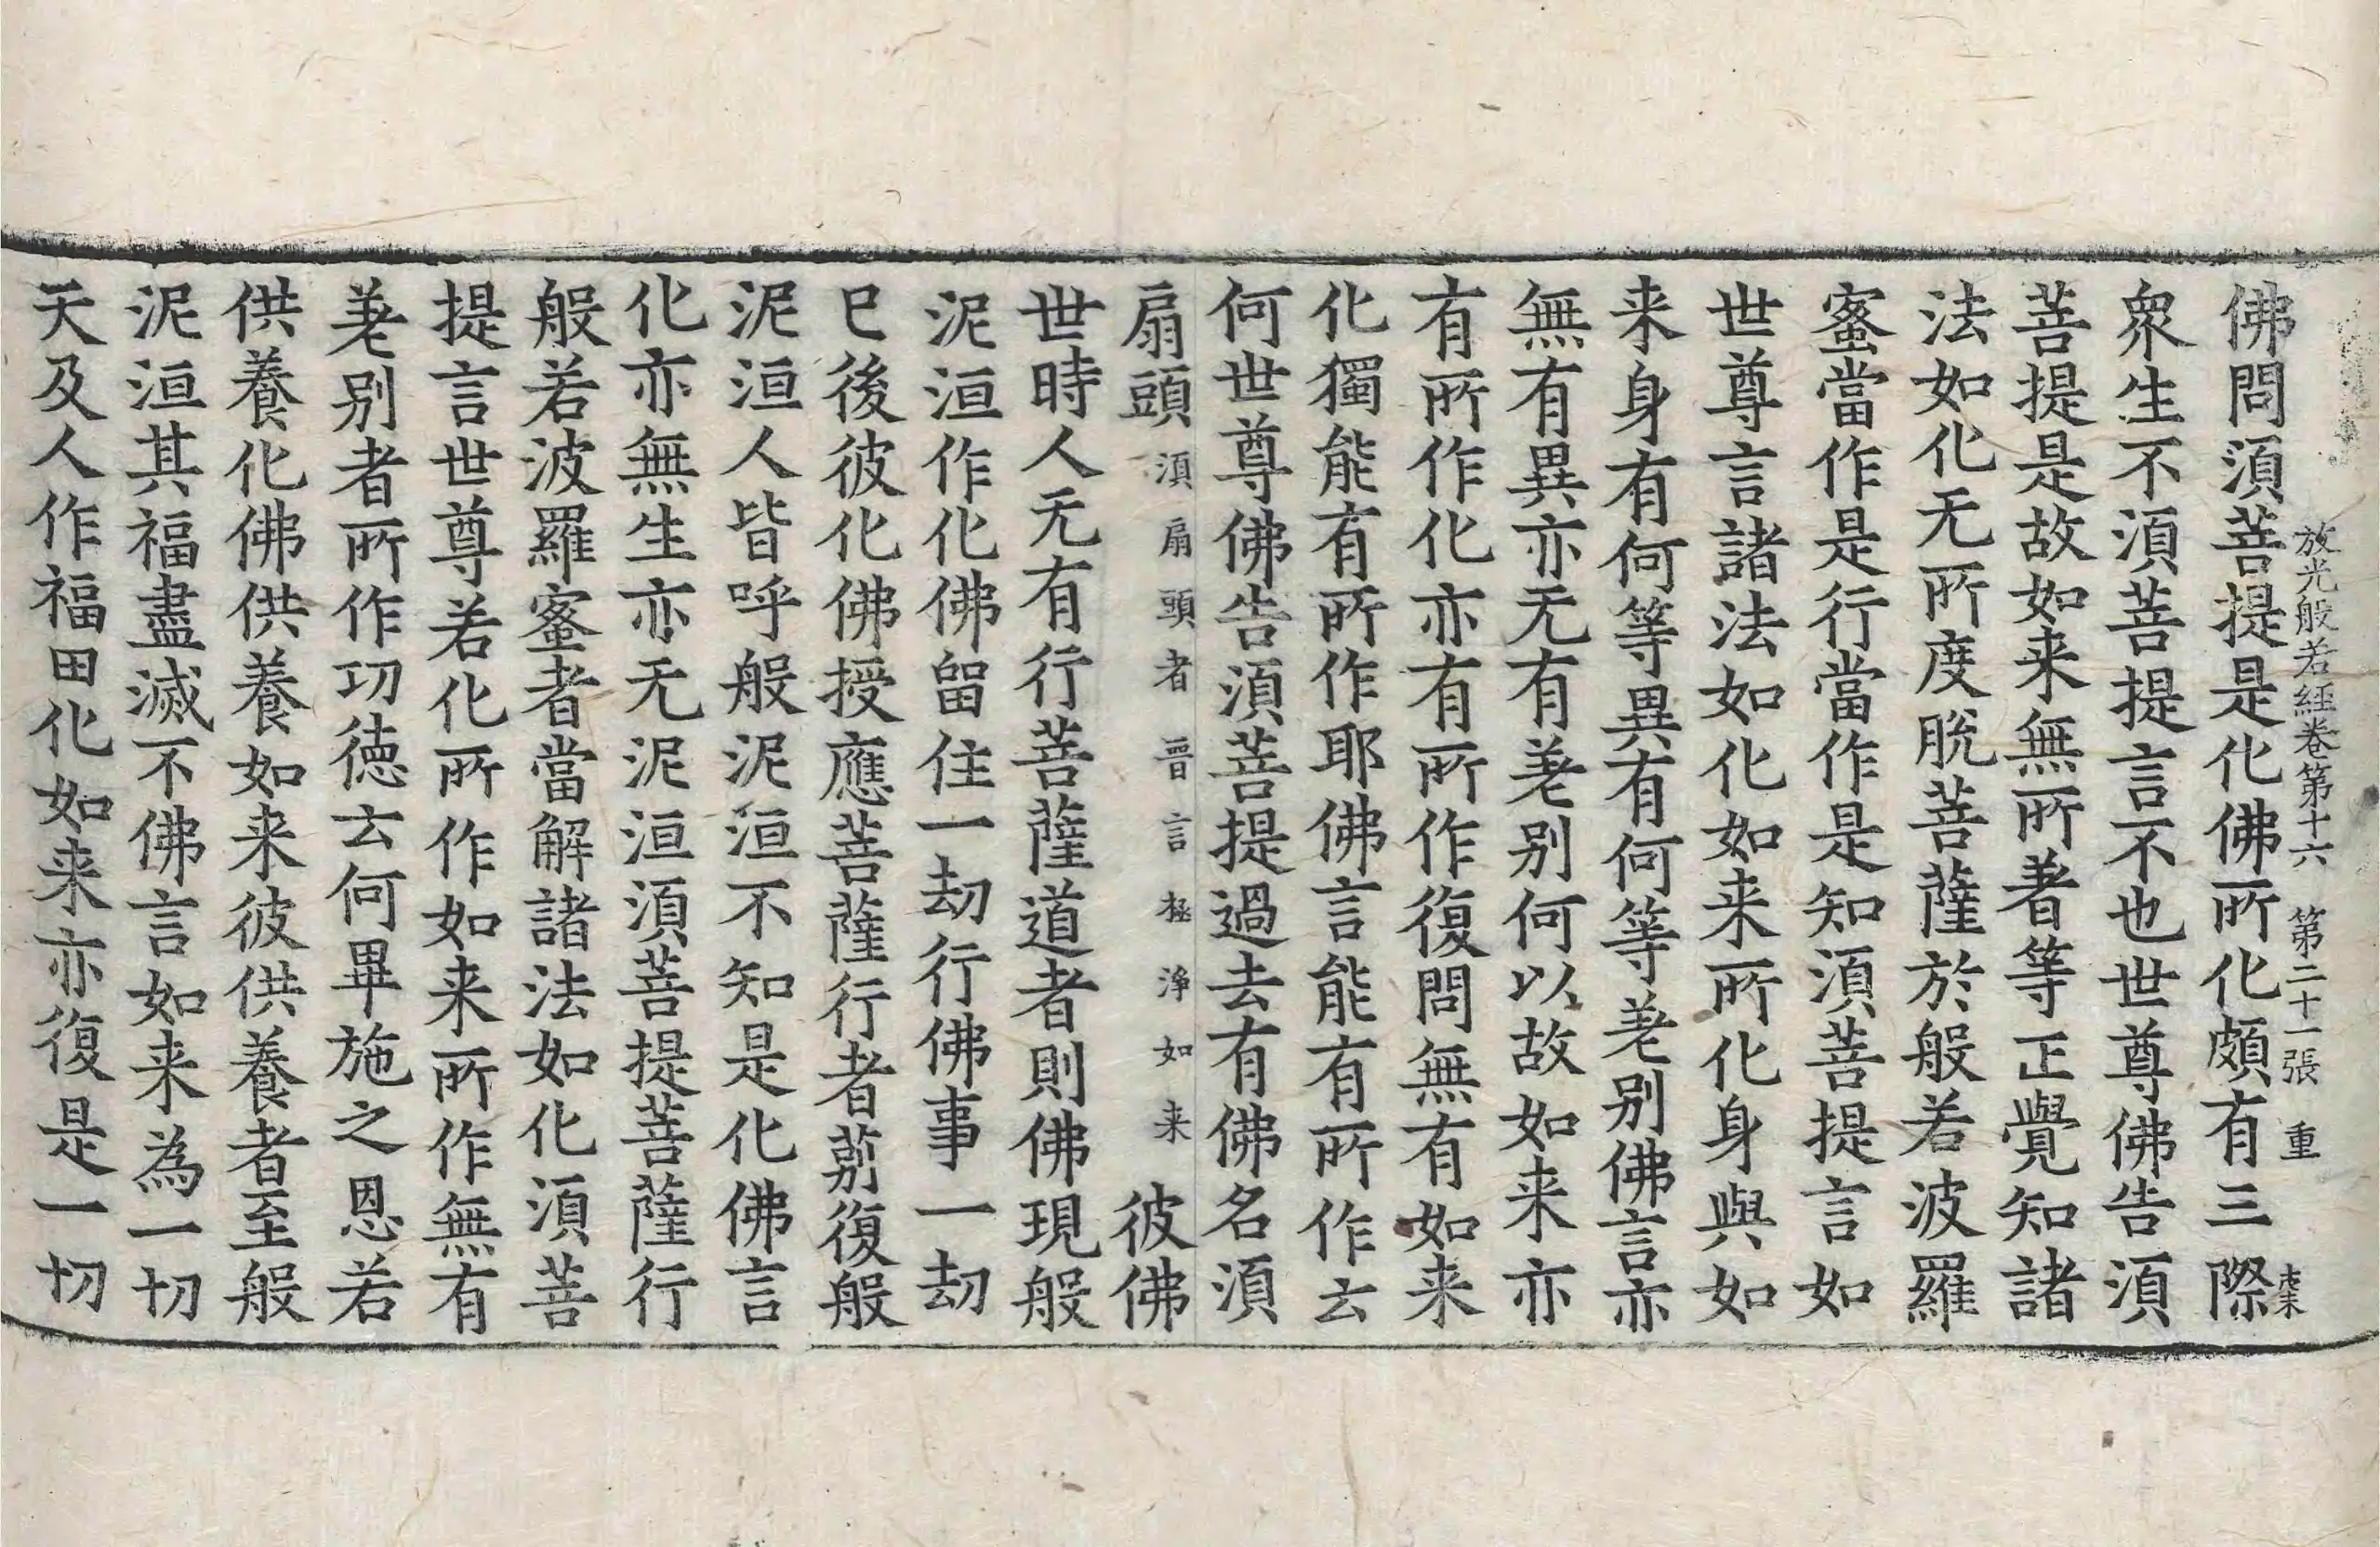 放光般若經卷第十六 第二十一張 重
佛問湏菩提是化佛所化頗有三際
衆生不湏菩提言不也世尊佛告湏
菩提是故如来無所著等正覺知諸
法如化无所度脫菩薩於般若波羅
蜜當作是行當作是知湏菩提言如
世尊言諸法如化如来所化身與如
来身有何等異有何等差别佛言亦
無有異亦无有差别何以故如来亦
有所作化亦有所作復問無有如来
化獨能有所作耶佛言能有所作云
何世尊佛告湏菩提過去有佛名湏
扇頭湏扇頭者晋言極淨如来彼佛
世時人无有行菩薩道者則佛現般
泥洹作化佛留住一劫行佛事一劫
已後彼化佛授應菩薩行者莂復般
泥洹人皆呼般泥洹不知是化佛言
化亦無生亦无泥洹湏菩提菩薩行
般若波羅蜜者當解諸法如化湏菩
提言世尊若化所作如来所作無有
差别者所作功德云何畢施之恩若
供養化佛供養如来彼供養者至般
泥洹其福盡滅不佛言如来為一切
天及人作福田化如来亦復是一切